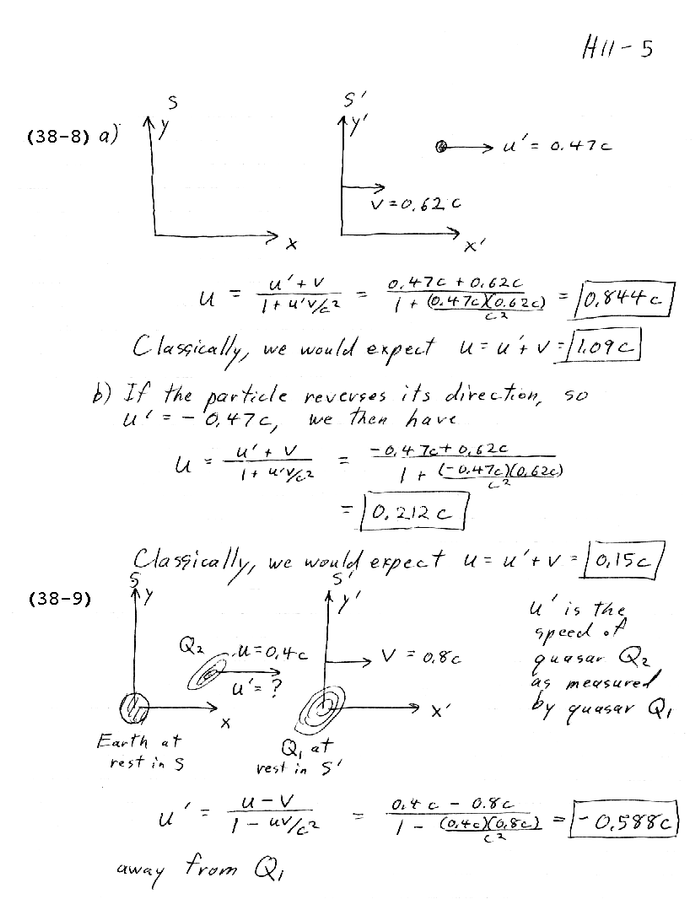 H11-5
(38-8) a)
S
y
x
S'
y'
x'
V = 0.62c
u' = 0.47c
u = (u' + v)/(1 + u'v/c²) = (0.47c + 0.62c)/(1 + (0.47c)(0.62c)/c²) = 0.844c
Classically, we would expect u = u' + v = 1.09c
b) If the particle reverses its direction, so
u' = -0.47c, we then have
u = (u' + v)/(1 + u'v/c²) = (-0.47c + 0.62c)/(1 + (-0.47c)(0.62c)/c²)
= 0.212c
Classically, we would expect u = u' + v = 0.15c
(38-9)
S
y
x
Q₂
u = 0.4c
u' = ?
Earth at
rest in S
S'
y'
V = 0.8c
x'
Q₁ at
rest in S'
u' is the
speed of
quasar Q₂
as measured
by quasar Q₁
u' = (u - v)/(1 - uv/c²) = (0.4c - 0.8c)/(1 - (0.4c)(0.8c)/c²) = -0.588c
away from Q₁